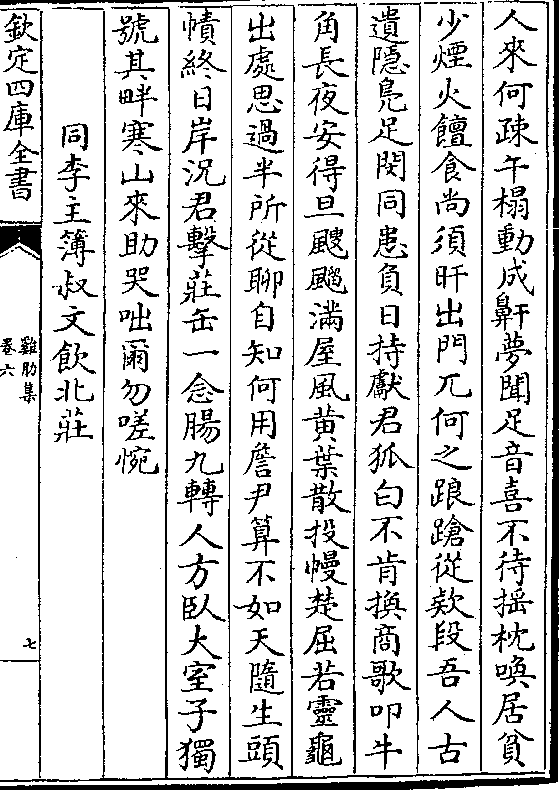 人來何疎午榻動成鼾夢聞足音喜不待揺枕喚居貧
少煙火饘食尚須旰出門兀何之踉蹌從欵段吾人古
遺隠鳬足閔同患負日持獻君狐白不肯換商歌叩牛
角長夜安得旦颼飀滿屋風黃葉散投幔楚屈若靈龜
出處思過半所從聊自知何用詹尹算不如天隨生頭
幘終日岸況君擊莊缶一念腸九轉人方臥大室子獨
號其畔寒山來助哭咄爾勿嗟惋
同李主簿叔文飲北莊
欽定四庫全書
雞肋集
卷六
七